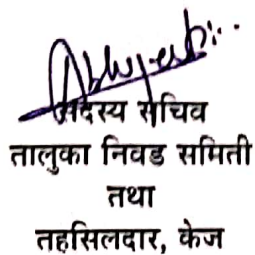 सदस्य सचिव
तालुका निवड समिती
तथा
तहसिलदार, केज